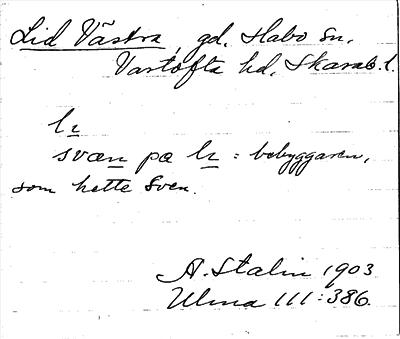 Lid Västra, gd, Habo sn,
Vartofta hd, Skarab. l.
lɩ
svæn pɑ lɩ : bebyggaren,
som hette Sven.
A. Stalin 1903
Ulma 111:386.